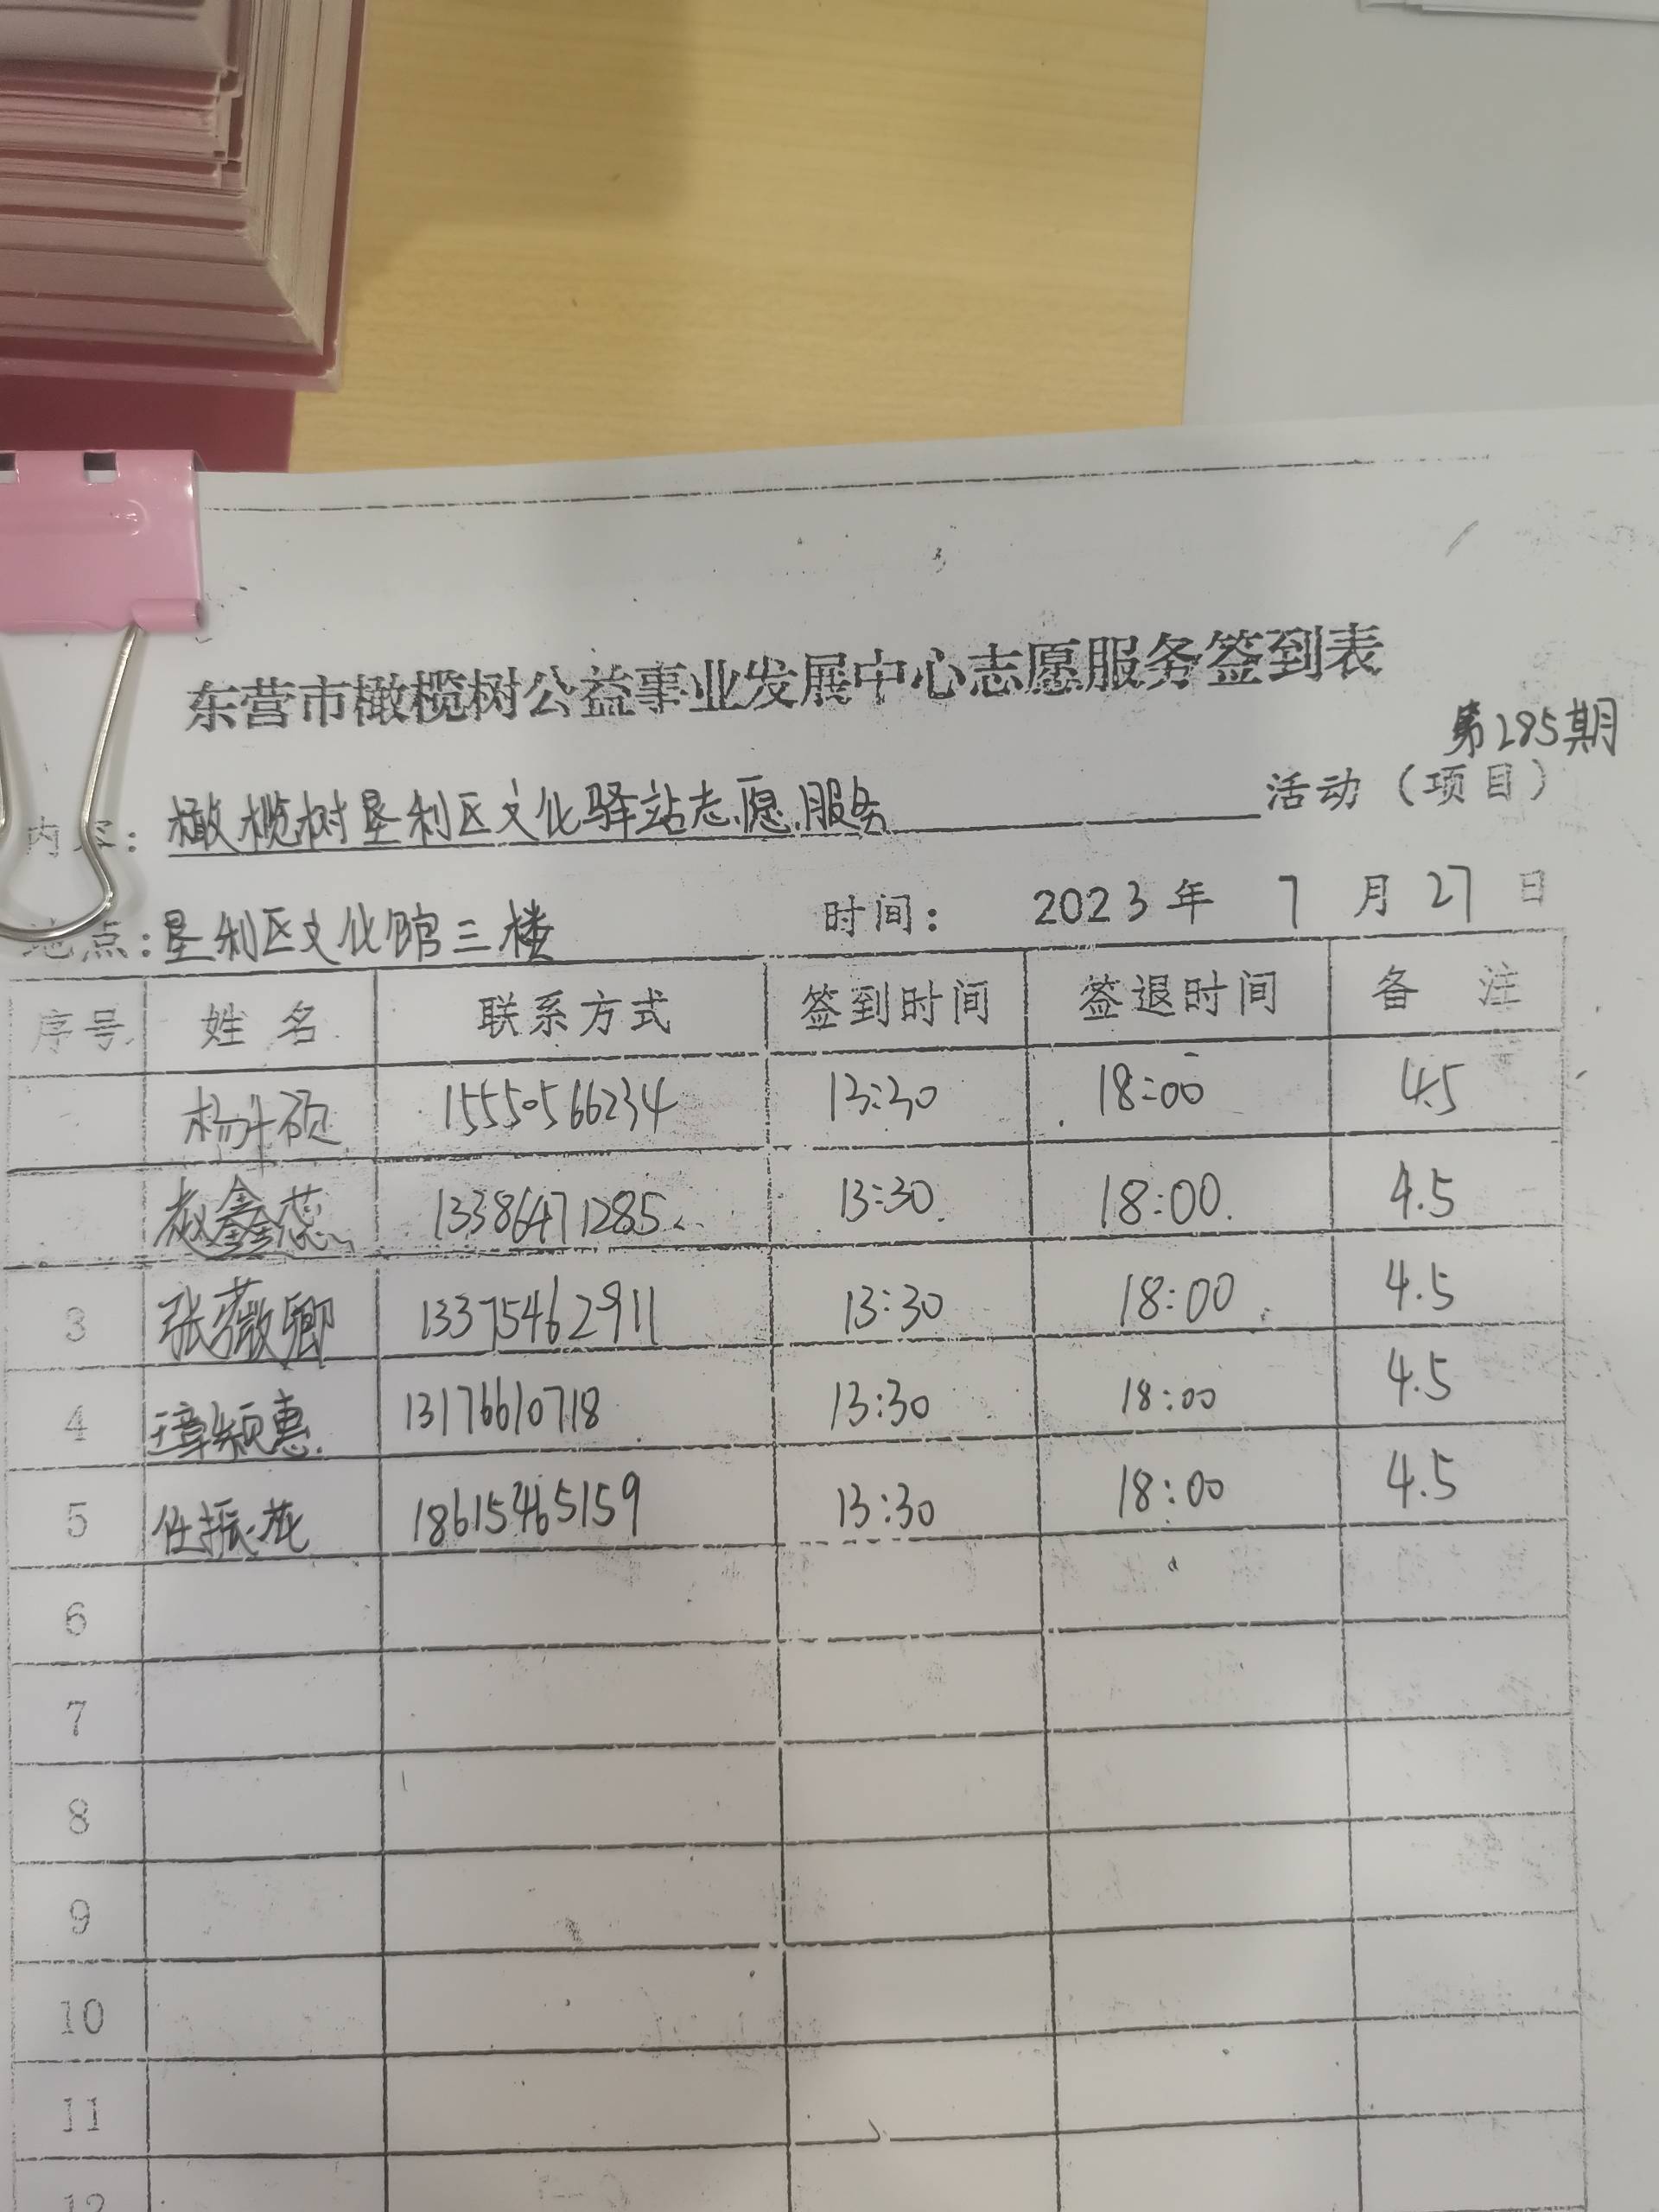 东营市橄榄树公益事业发展中心志愿服务签到表
第285期
内容: 橄榄树垦利区文化驿站志愿服务 活动（项目）
地点: 垦利区文化馆三楼 时间: 2023年 7月27日
序号 姓名 联系方式 签到时间 签退时间 备注
15550566234 13:30 18:00 4.5
赵鑫蕊 13386471285 13:30 18:00 4.5
3 张薇卿 13375462911 13:30 18:00 4.5
4 13176610718 13:30 18:00 4.5
5 任振花 18615465159 13:30 18:00 4.5
6
7
8
9
10
11
12